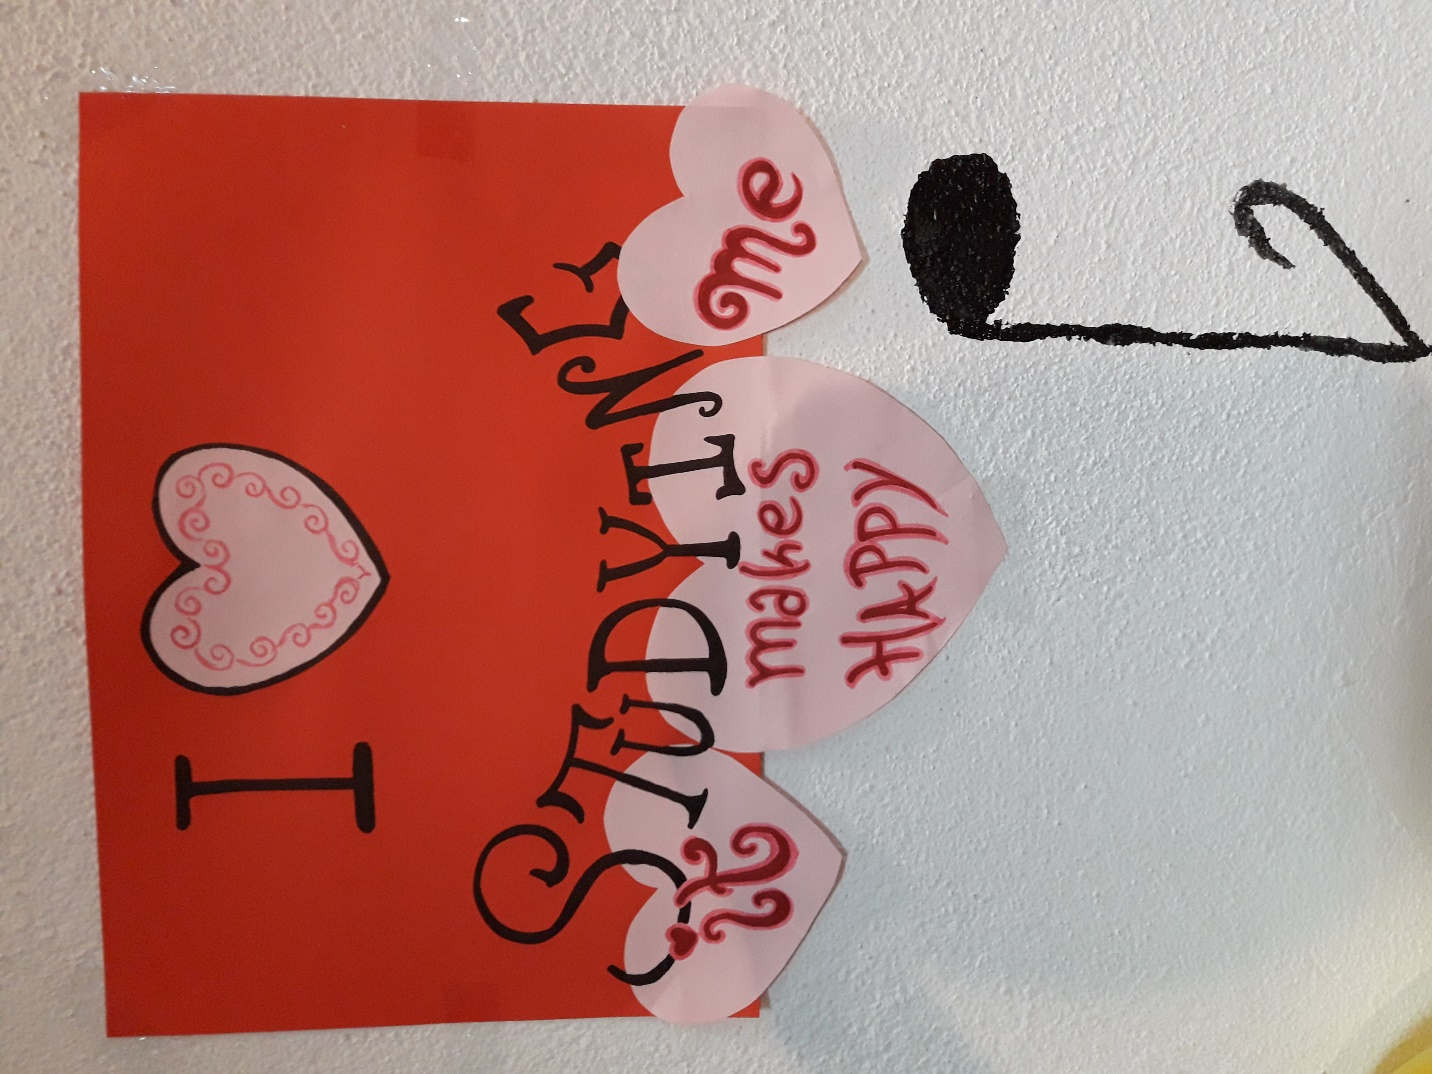 I ♥
STUDYING
it makes me
HAPPY